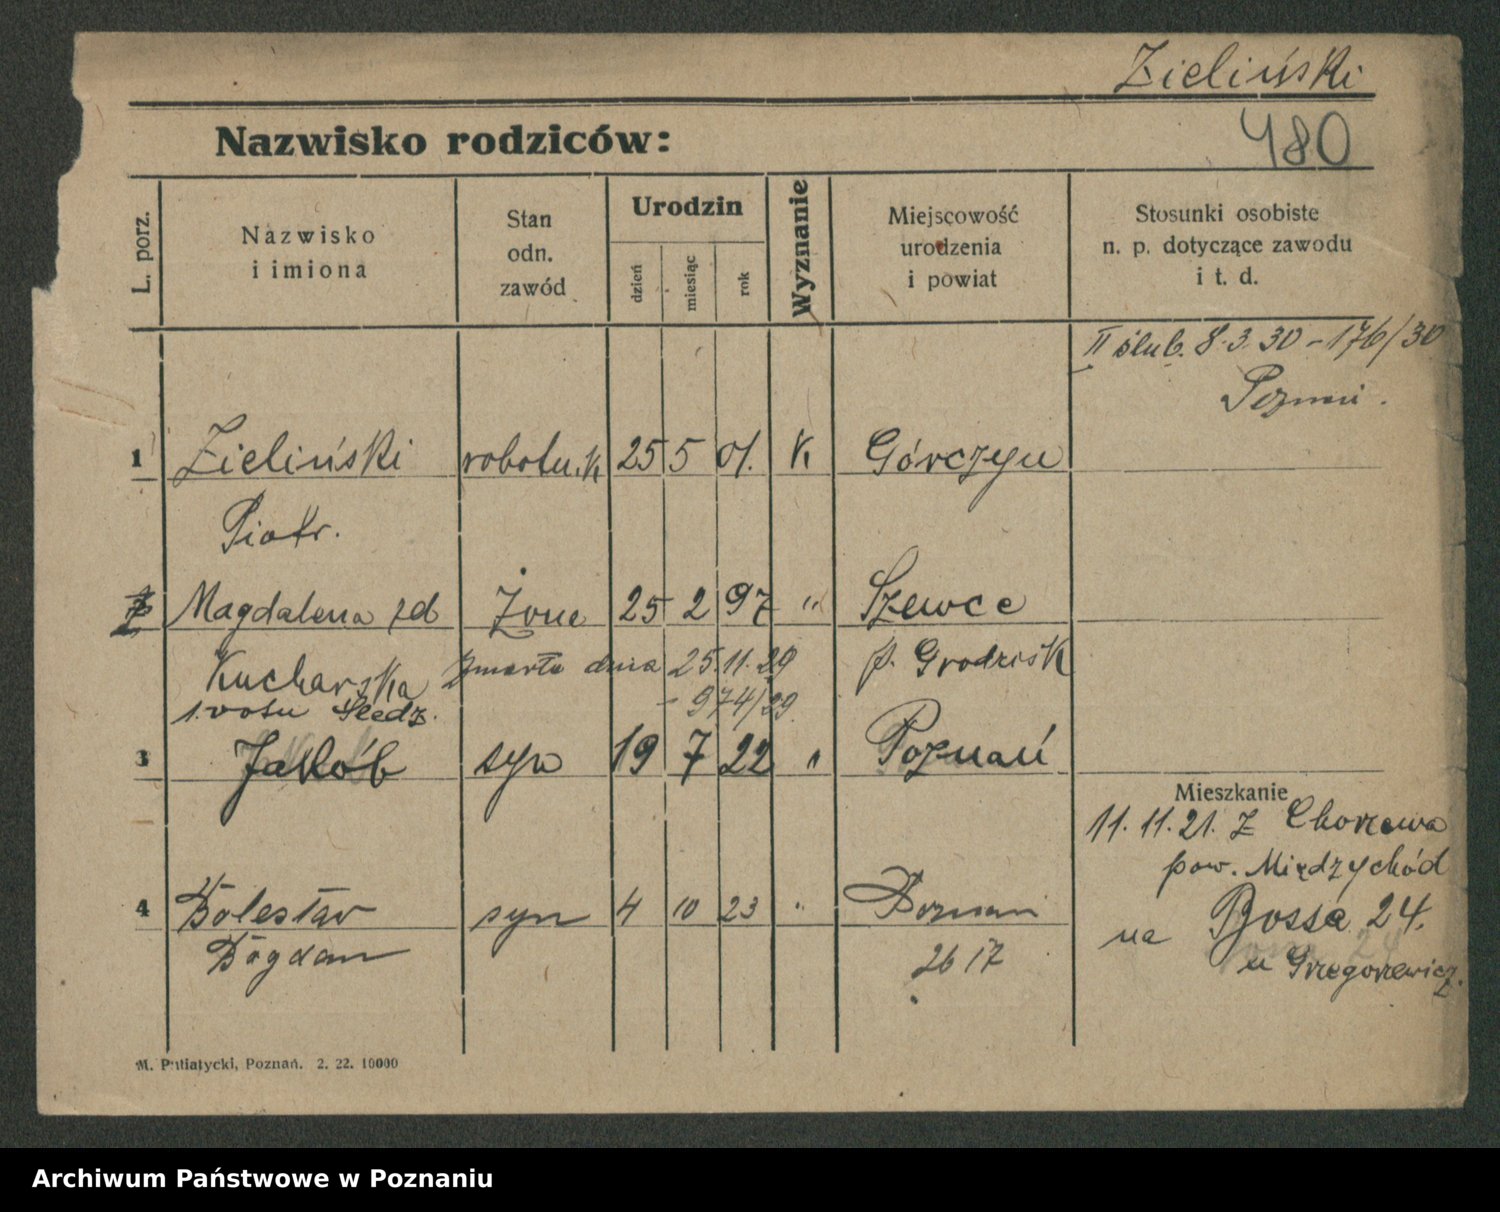 Zieliński
480
Nazwisko rodziców:
L. porz.
Nazwisko
i imiona
Stan
odn.
zawód
Urodzin
dzień
miesiąc
rok
Wyznanie
Miejscowość
urodzenia
i powiat
Stosunki osobiste
n. p. dotyczące zawodu
i t. d.
II ślub. 8.3.30 - 176/30
Poznań.
1 Zieliński robotnik 25 5 01. K Górczyn
Piotr.
2 Magdalena zd Żona 25 2 97 " Szewce
Kucharska zmarła dnia 25.11.29 p. Grodzisk
1. votu Śledz. - 974/29
3 Jakób syn 19 7 22 " Poznań
Mieszkanie
11.11.21. Z Chorzewa
pow. Międzychód
4 Bolesław syn 4 10 23 " Poznań
na Bossa 24.
Bogdan 2617
u Grzegorzewicz.
M. Putiatycki, Poznań. 2. 22. 10000
Archiwum Państwowe w Poznaniu